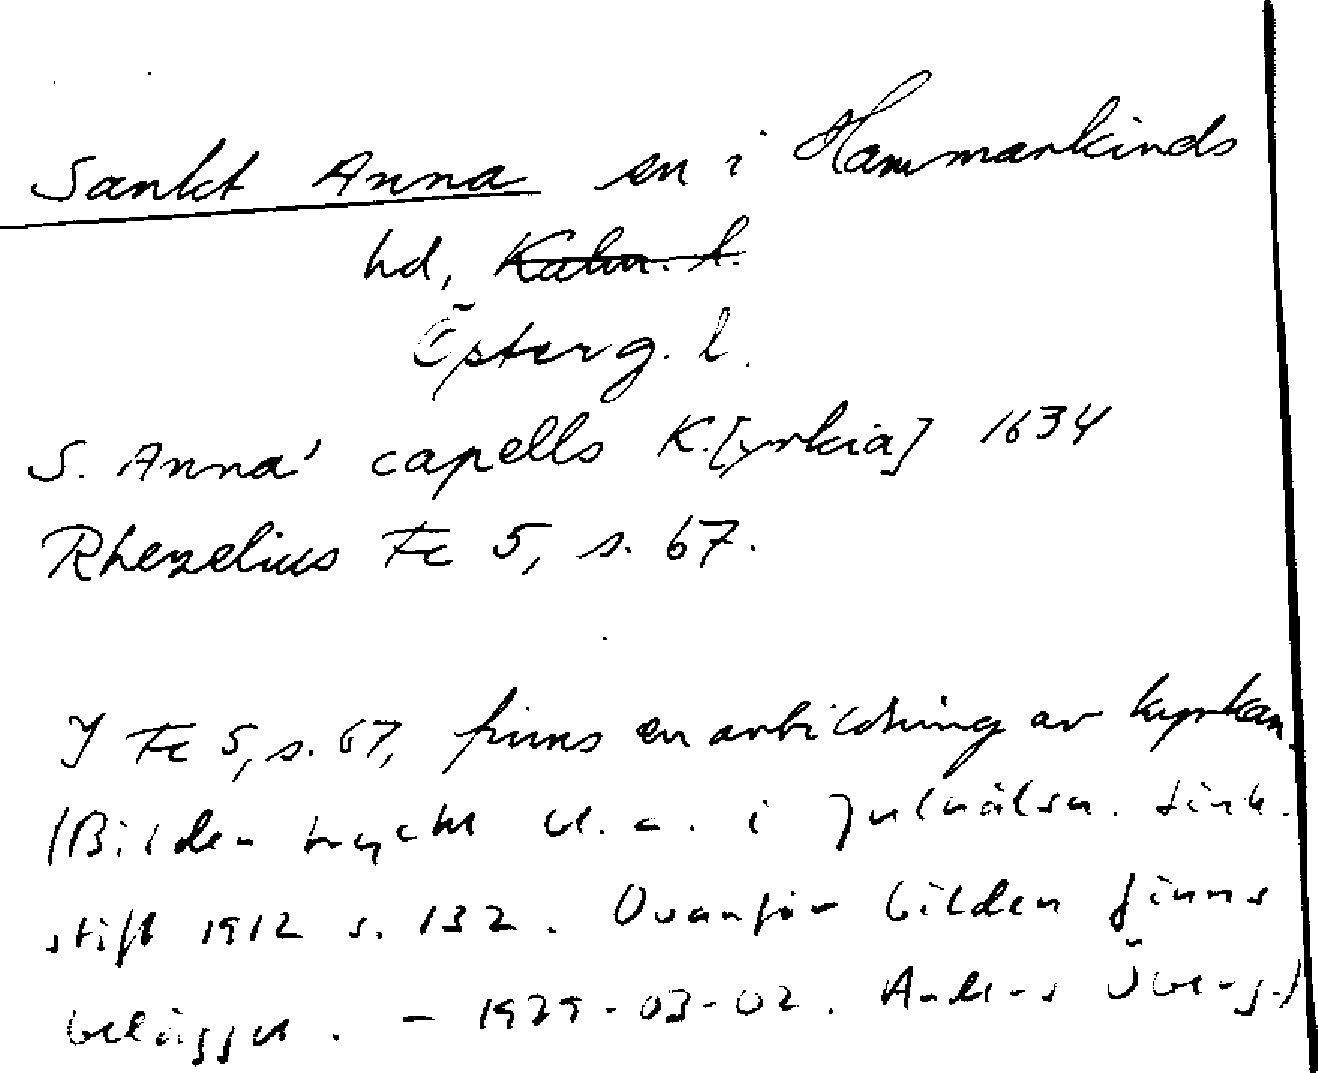 Sankt Anna sn i Hammarkinds
hd, Kalm. l.
Österg. l.
S. Anna' capells K.[yrkia] 1634
Rhezelius Fc 5, s. 67.
I Fc 5, s. 67, finns en avbildning av kyrkan.
(Bilden tryckt bl. a. i Julhälsn. Link.
stift 1912 s. 132. Ovanför bilden finns
belägget. – 1979-03-02. Anders Öberg.)